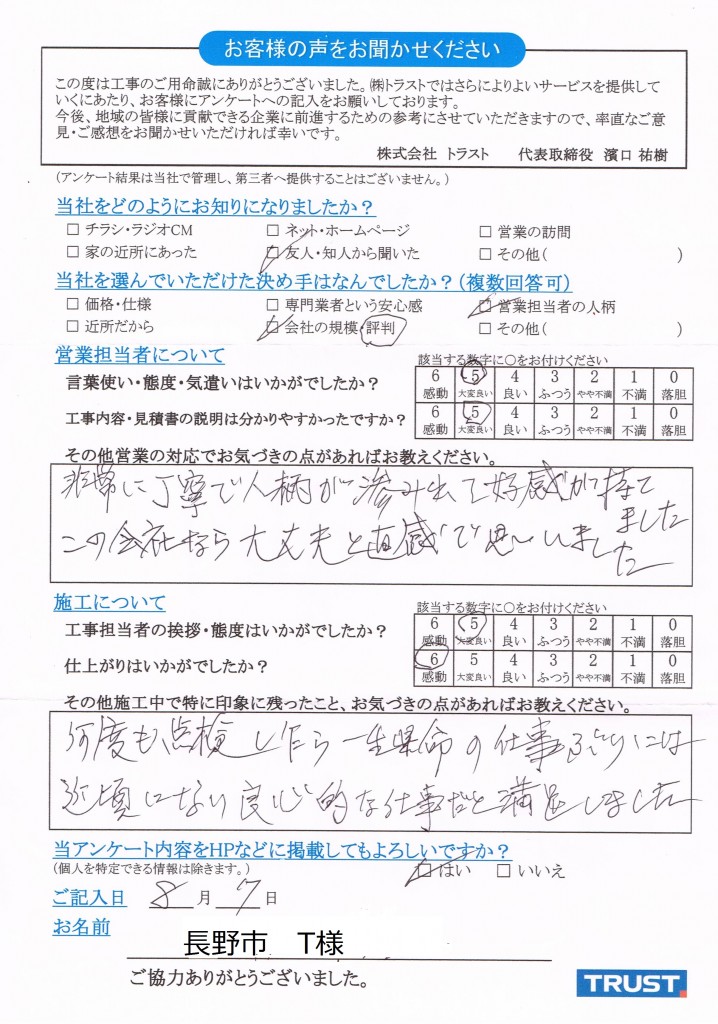 お客様の声をお聞かせください
この度は工事のご用命誠にありがとうございました。㈱トラストではさらによりよいサービスを提供して
いくにあたり、お客様にアンケートへの記入をお願いしております。
今後、地域の皆様に貢献できる企業に前進するための参考にさせていただきますので、率直なご意
見・ご感想をお聞かせいただければ幸いです。
株式会社 トラスト 代表取締役 濱口 祐樹
(アンケート結果は当社で管理し、第三者へ提供することはございません。)
当社をどのようにお知りになりましたか？
□ チラシ・ラジオCM □ ネット・ホームページ □ 営業の訪問
□ 家の近所にあった □ 友人・知人から聞いた □ その他( )
当社を選んでいただけた決め手はなんでしたか？(複数回答可)
□ 価格・仕様 □ 専門業者という安心感 □ 営業担当者の人柄
□ 近所だから □ 会社の規模・評判 □ その他( )
営業担当者について 該当する数字に○をお付けください
言葉使い・態度・気遣いはいかがでしたか？ 6 5 4 3 2 1 0
感動 大変良い 良い ふつう やや不満 不満 落胆
工事内容・見積書の説明は分かりやすかったですか？ 6 5 4 3 2 1 0
感動 大変良い 良い ふつう やや不満 不満 落胆
その他営業の対応でお気づきの点があればお教えください。
非常に丁寧で人柄が滲み出て好感が持て
ました
この会社なら大丈夫と直感で思いました
施工について 該当する数字に○をお付けください
工事担当者の挨拶・態度はいかがでしたか？ 6 5 4 3 2 1 0
感動 大変良い 良い ふつう やや不満 不満 落胆
仕上がりはいかがでしたか？ 6 5 4 3 2 1 0
感動 大変良い 良い ふつう やや不満 不満 落胆
その他施工中で特に印象に残ったこと、お気づきの点があればお教えください。
何度も点検し乍ら一生県命の仕事ぶりには
近頃にない良心的な仕事だと満足しました
当アンケート内容をHPなどに掲載してもよろしいですか？
(個人を特定できる情報は除きます。) □ はい □ いいえ
ご記入日 8 月 7 日
お名前
長野市 T様
ご協力ありがとうございました。
TRUST.